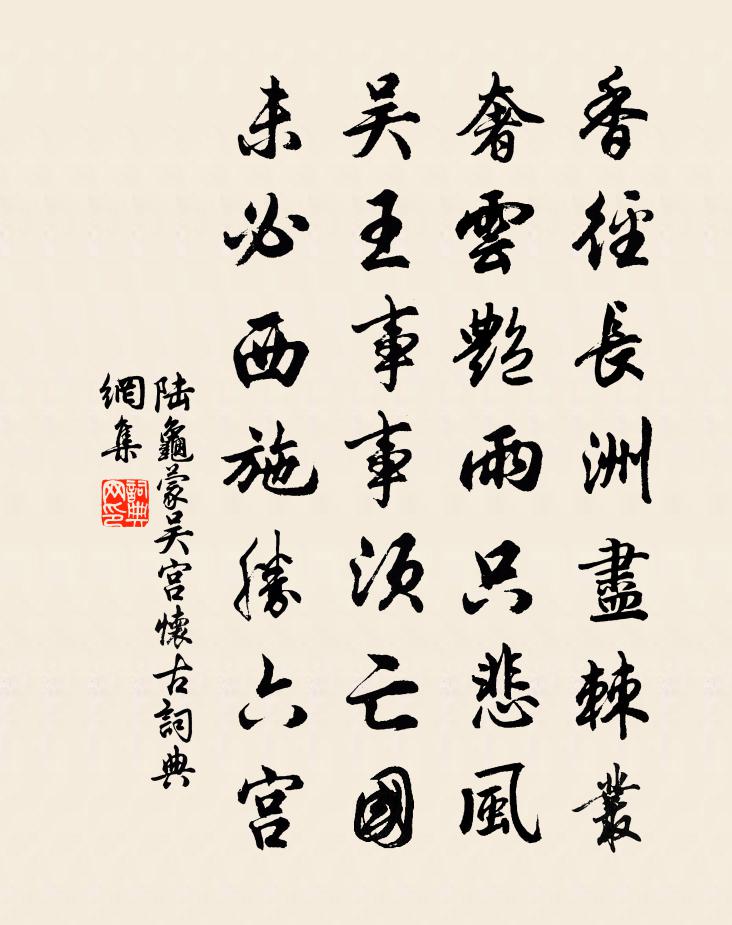 香徑長洲盡棘叢
奢雲艷雨只悲風
吴王事事須亡國
未必西施勝六宫
陆龜蒙吴宫懷古詞典
網集
詞典
网印